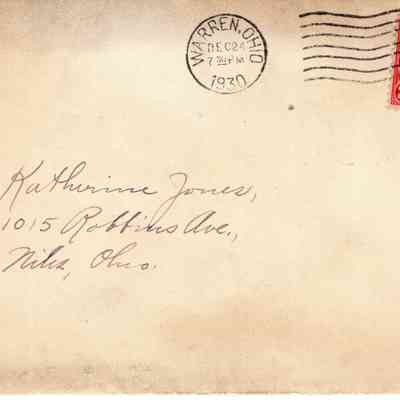 WARREN, OHIO
DEC 24
7 30 PM
1930
Katherine Jones,
1015 Robbins Ave.,
Niles, Ohio.